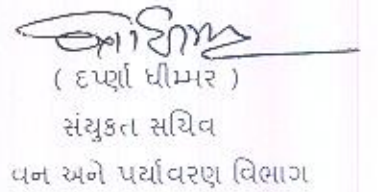 ( દર્પણા ધીમ્મર )
સંયુકત સચિવ
વન અને પર્યાવરણ વિભાગ